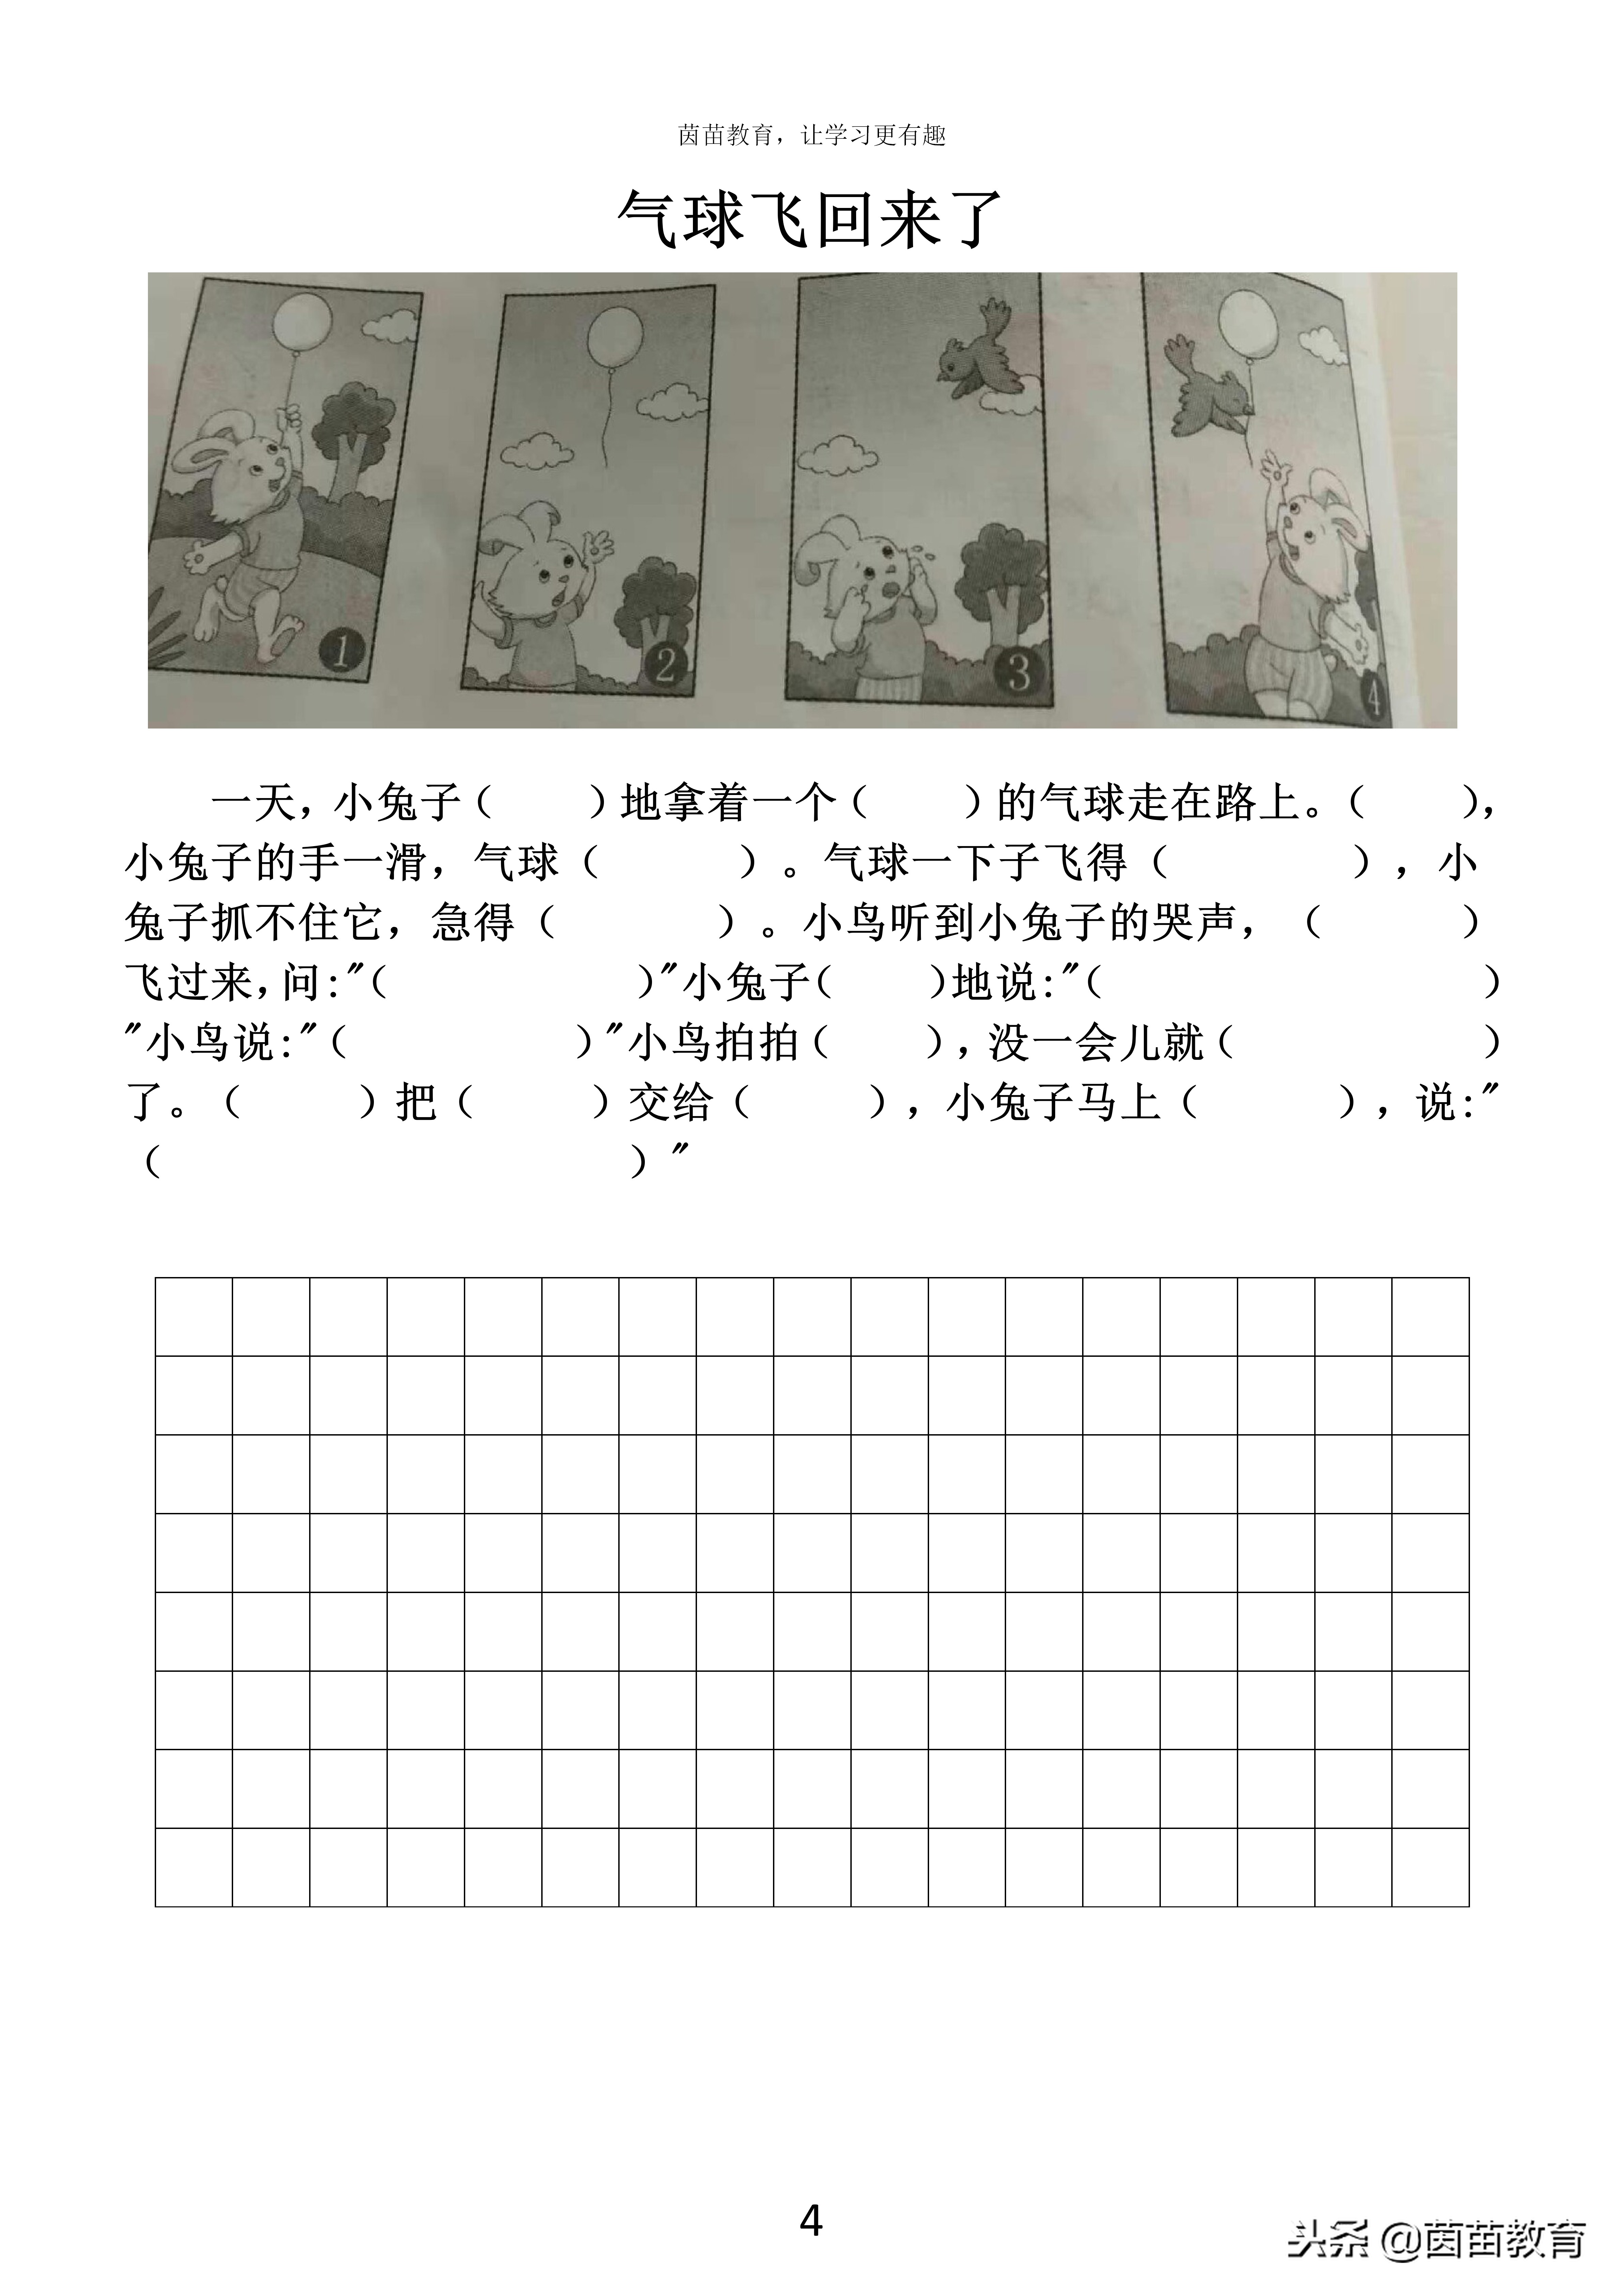 茵苗教育，让学习更有趣
气球飞回来了
1 2 3 4
一天，小兔子（　　）地拿着一个（　　）的气球走在路上。（　　），
小兔子的手一滑，气球（　　　）。气球一下子飞得（　　　　），小
兔子抓不住它，急得（　　　）。小鸟听到小兔子的哭声，（　　　）
飞过来，问："（　　　　　）"小兔子（　　）地说："（　　　　　　　　）
"小鸟说："（　　　　　）"小鸟拍拍（　　），没一会儿就（　　　　　）
了。（　　）把（　　）交给（　　），小兔子马上（　　　），说："
（　　　　　　　　　　）"
4
头条 @茵苗教育